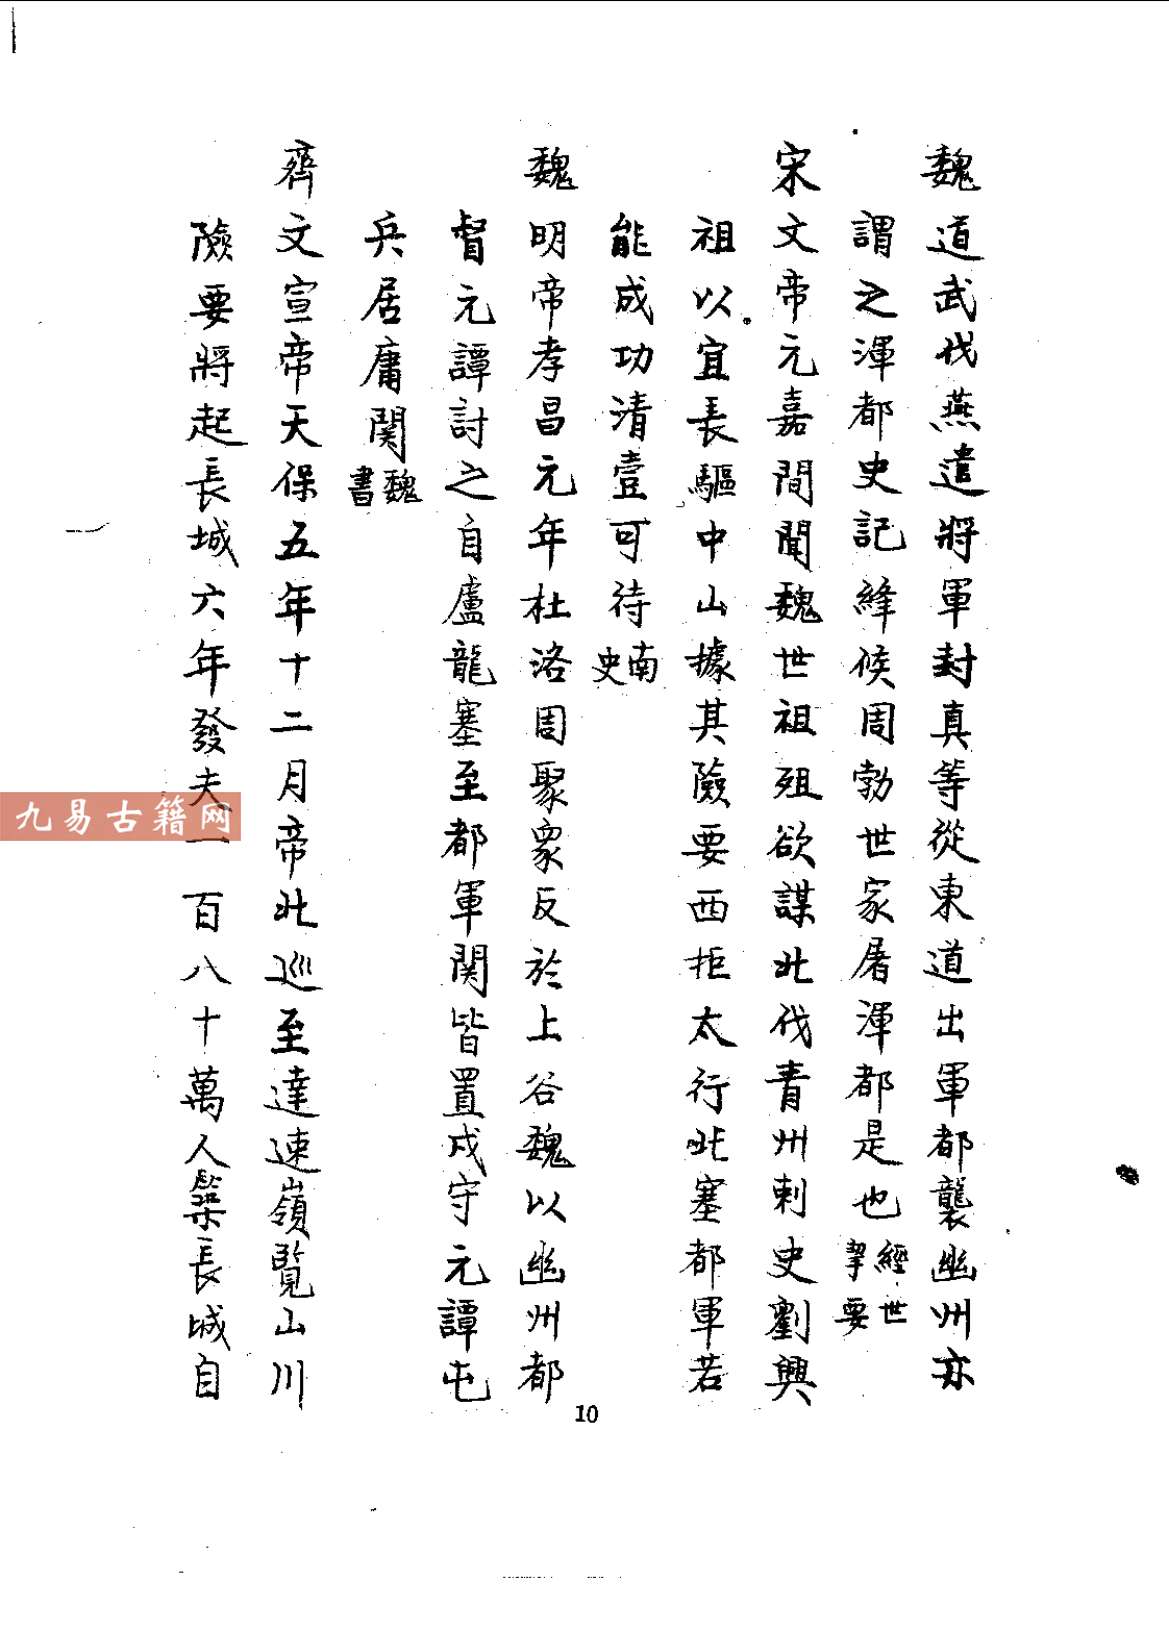 魏道武伐燕遣將軍封真等從東道出軍都襲幽州亦
謂之渾都史記絳侯周勃世家屠渾都是也經世挈要
宋文帝元嘉間聞魏世祖殂欲謀北伐青州刺史劉興
祖以宜長驅中山據其險要西拒太行北塞都軍若
能成功清壹可待南史
魏明帝孝昌元年杜洛周聚衆反於上谷魏以幽州都
督元譚討之自盧龍塞至都軍関皆置戍守元譚屯
兵居庸関魏書
齊文宣帝天保五年十二月帝北巡至達速嶺覧山川
險要將起長城六年發夫一百八十萬人築長城自
九易古籍网
10